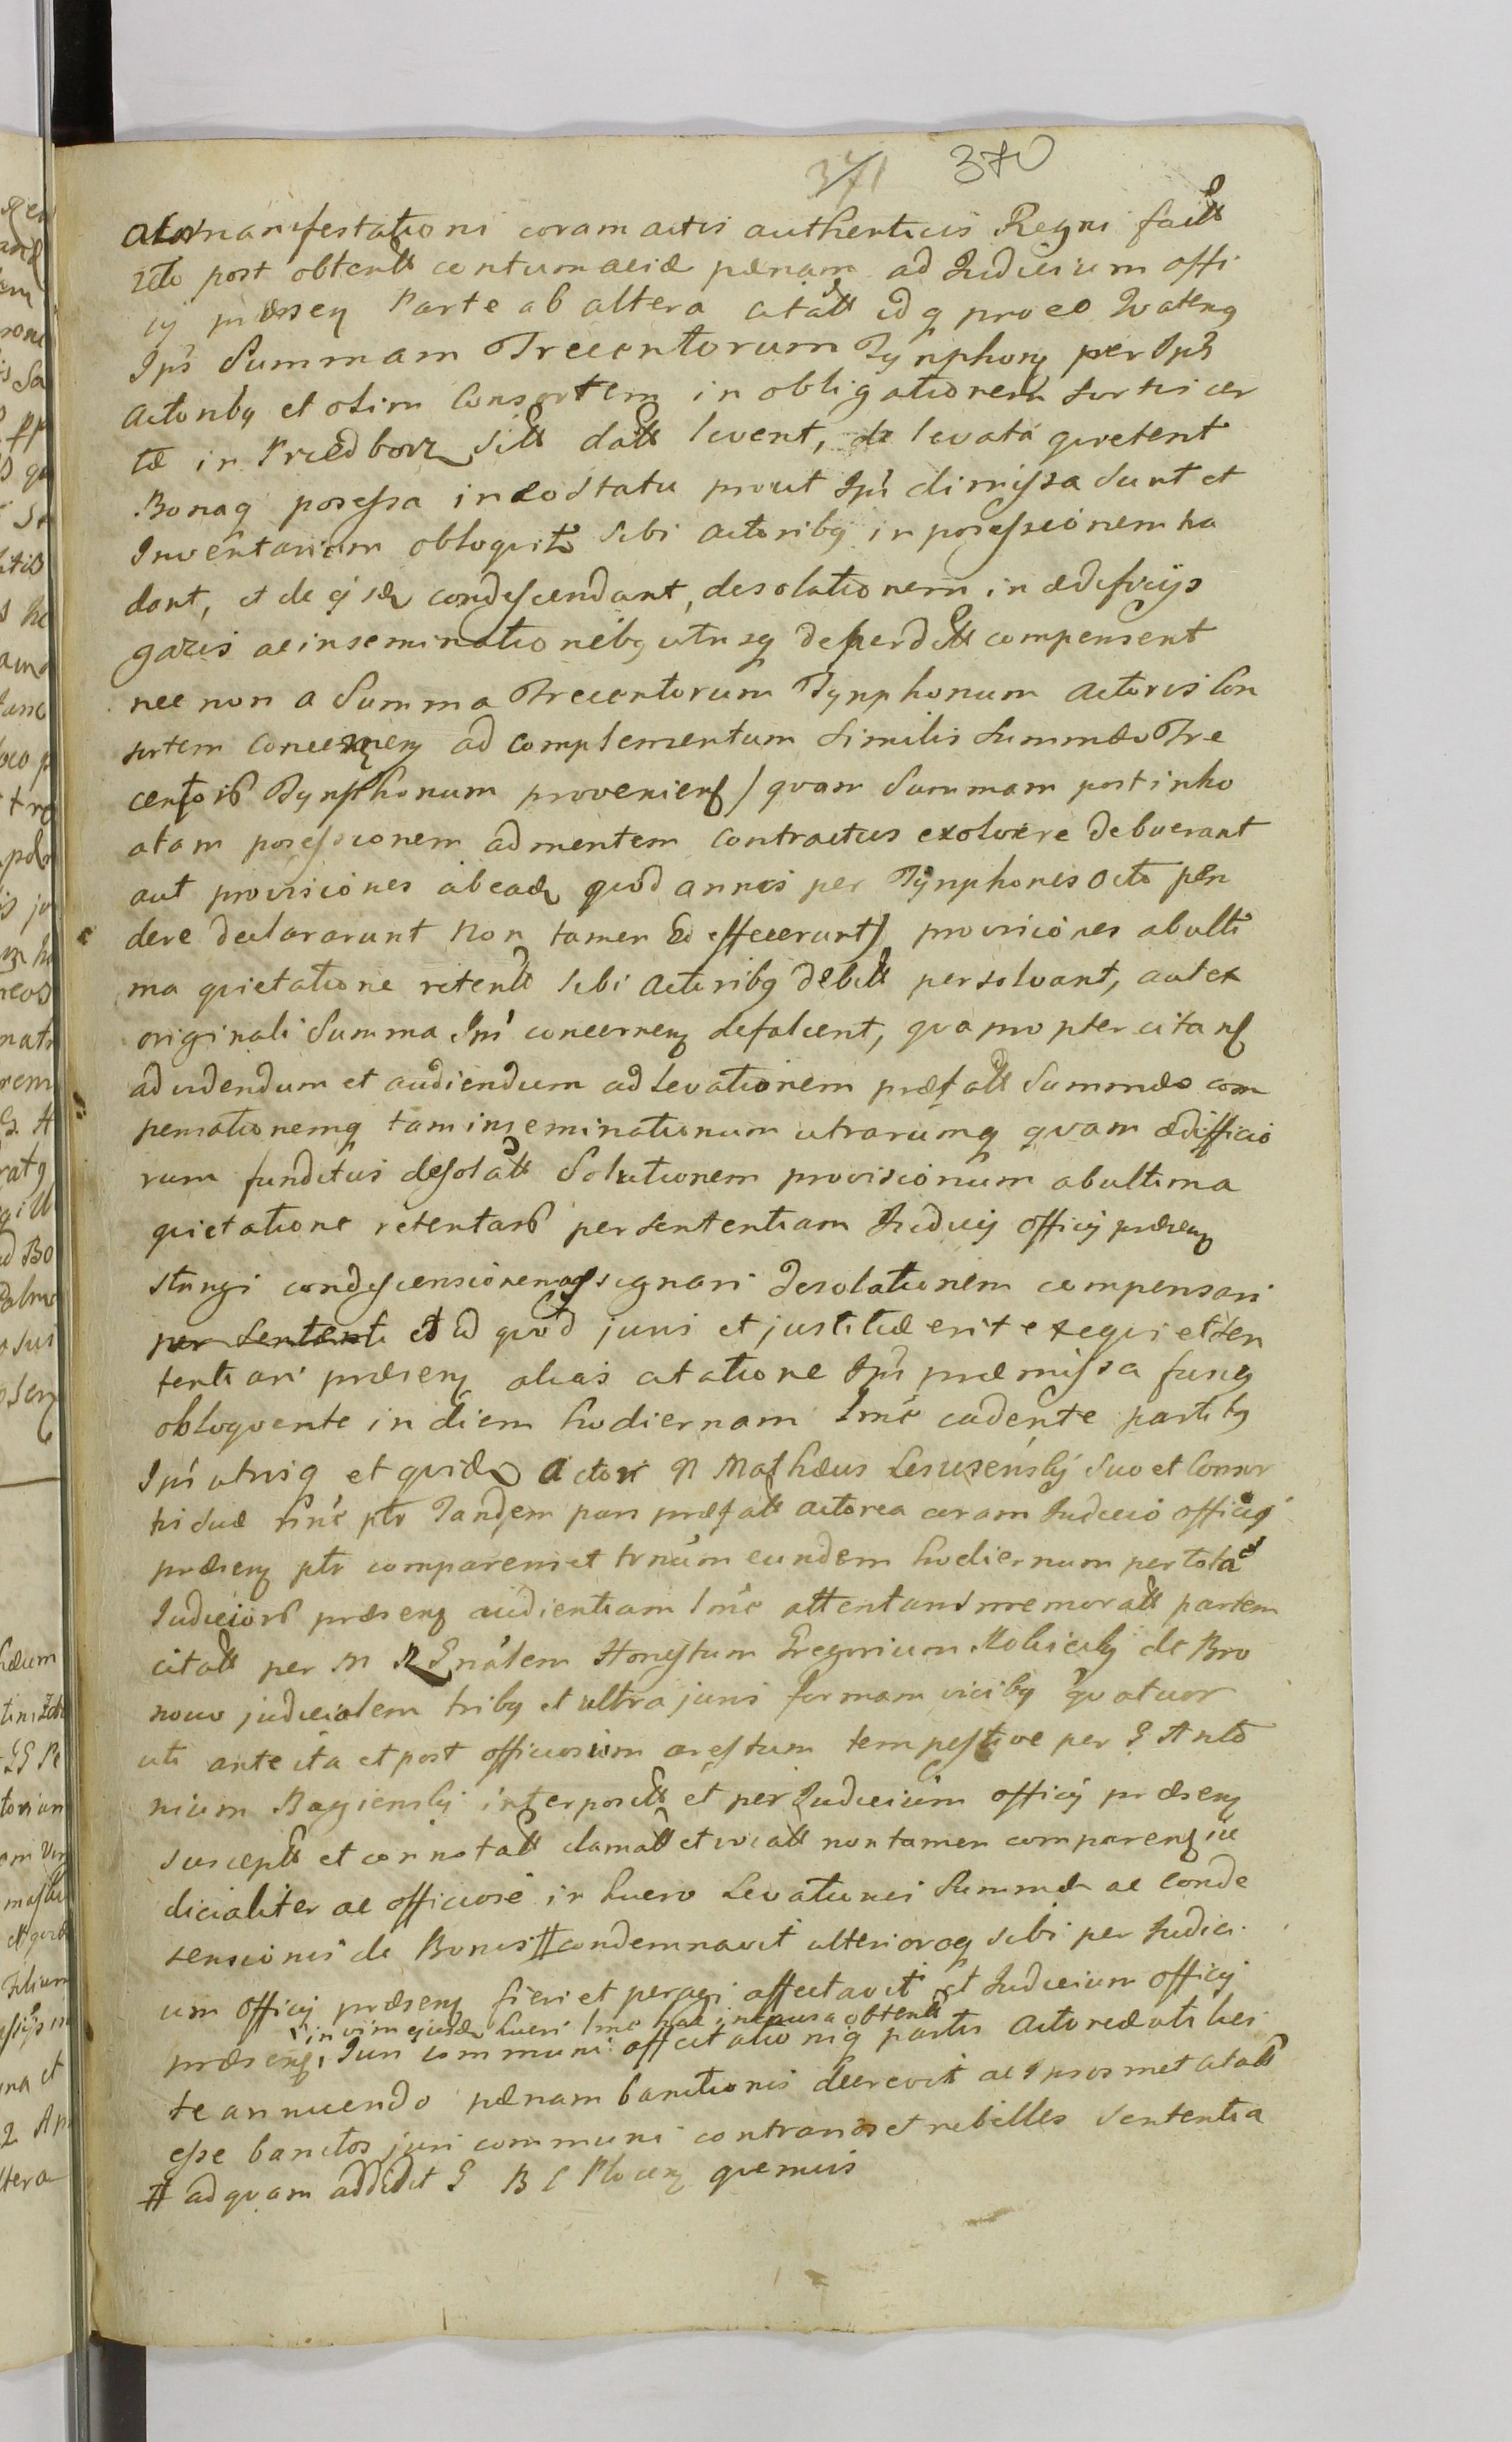 371 370
manifestationi coram actis authenticis Regni fact
post obtent contumaciæ pænam ad Judicium offi
cij præsen Parte ab altera citatt id q pro eo Quateng
Ips Summam Trecentorum Tynphong per Ips
actoribg et olim Consortem in obligationem sortis cer
tæ in Priedborz datt levent, de levata qvietent
Bonaq posessa in eo statu prout Ips dimissa sunt et
Inventarium obloqvit sibi actoribg in posessionem tra
dant, et de condescendant, desolationem in ædificijs
gazis ac inseminationibg utrisq deperditt compensent
nec non a Summa Trecentorum Tynphonum actoris Con
sortem concernen ad complementum similis summæ Tre
centor Tynphonum provenien / qvam Summam post incho
atam posessionem ad mentem contractus exolvere debuerant
aut provisiones ab eadem qvod annis per Tynphones octo pen
dere declararunt non tamen id effecerunt / provisiones ab ulti
ma qvietatione retentt sibi actoribg debitt persolvant, aut ex
originali Summa Ips concernen defalcent, qva propter citans
ad videndum et audiendum ad Levationem præfatt Summæ com
pensationemq tam inseminationum utrarumq qvam ædifficio
rum funditus desolatt Solutionem provisionum ab ultima
qvietatione retentar per sententiam Judicij officij præsen
stringi condescensionem assignari desolationem compensari
per sententi et id qvod juris et justitiæ erit exeqvi et sen
tentiari præsen alias citatione Ips præmissa fusig
obloqvente in diem hodiernam Imc cadente partibg
Ips utrisq et qvidem actor N Mathæus suo et Consor
tis suæ ptr Tandem pars præfatt actorea coram Judicio officij
præsen ptr comparens et trnum eundem hodiernum per tota
Judicior præsen audientiam Imc attentans memoratt partem
citatt per M R Gnalem Honestum Gregorium de Bro
nowo judicialem tribg et ultra juris formam vicibg qvatuor
uti ante ita et post officiosum arestum tempestive per G Anto
nium Bagienski interpositt et per Judicium officij præsen
susceptt et connotatt clamatt et vocatt non tamen comparen iu
dicialiter ac officiose in lucro Levationis Summæ ac Conde
sensionis de Bonis # condemnavit ulteriorag sibi per Judici
um officij præsen fieri et peragi affectavit et Judicium officij
in vim ejusdem lucri Imc hac in causa obtentt
præsens, Juri communi affectationiq partis actoreæ uti lici
te annuendo pænam banitionis decrevit ac Ipsosmet citatt
esse banitos juri communi contrarios et rebelles sententia
# ad qvam addidit G B S Plocen qvemvis